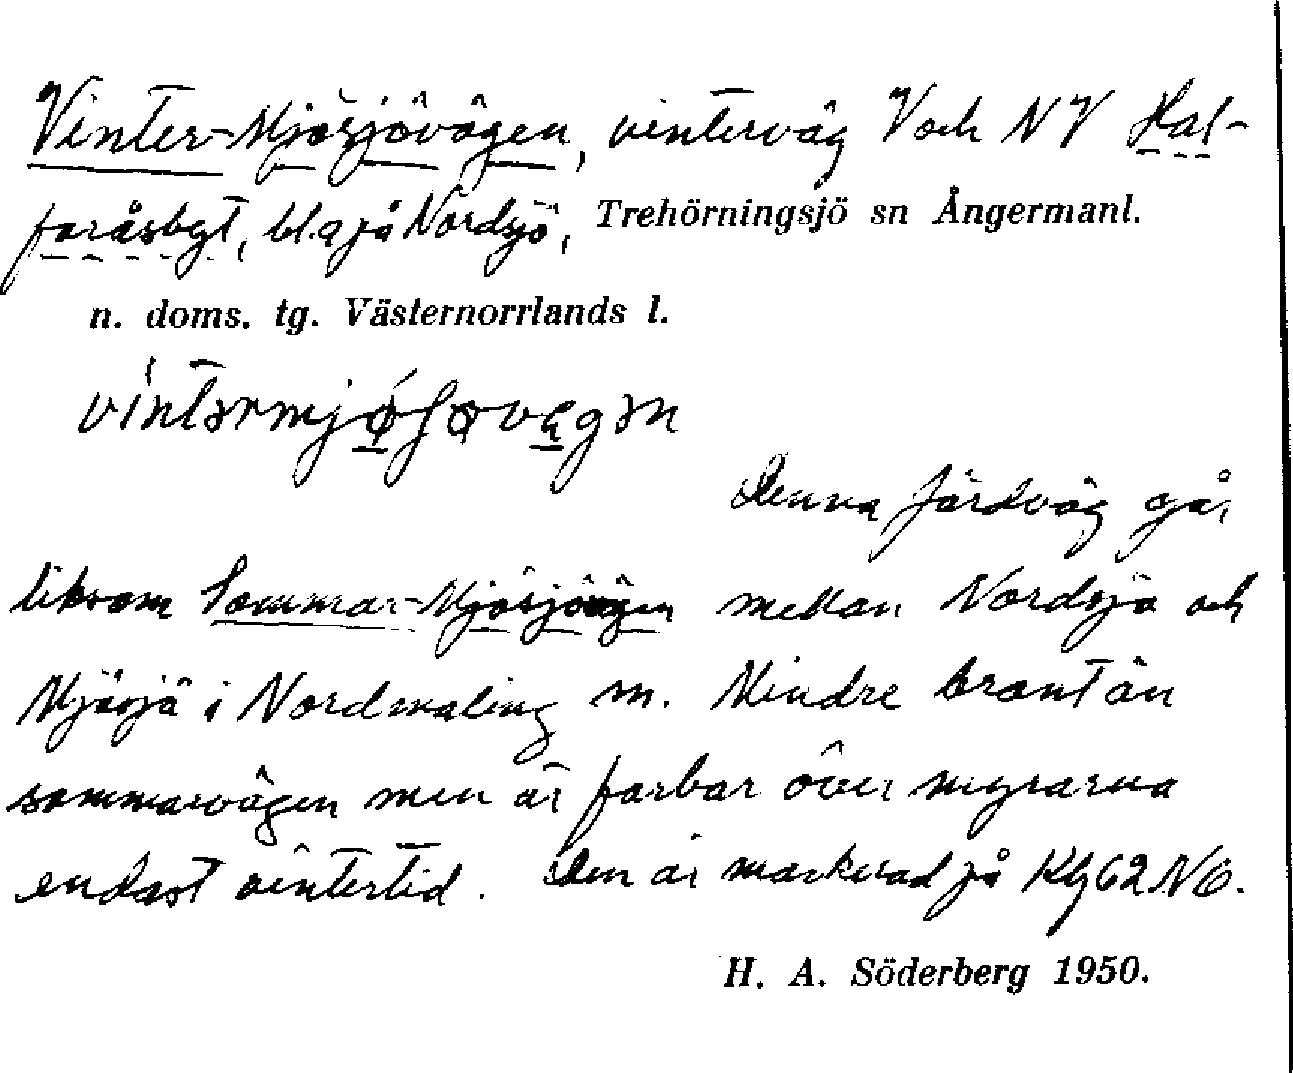 Vinter-Mjösjövägen, vinterväg V och NV Hal-
faråsbyt, bl.a på Nordsjö, Trehörningsjö sn Ångermanl.
n. doms. tg. Västernorrlands l.
Denna färdväg går
liksom Sommar-Mjösjövägen mellan Nordsjö och
Mjösjö i Nordmaling sn. Mindre brant än
sommarvägen men är farbar över myrarna
endast vintertid. Den är markerad på Kbg 62 NO.
H. A. Söderberg 1950.